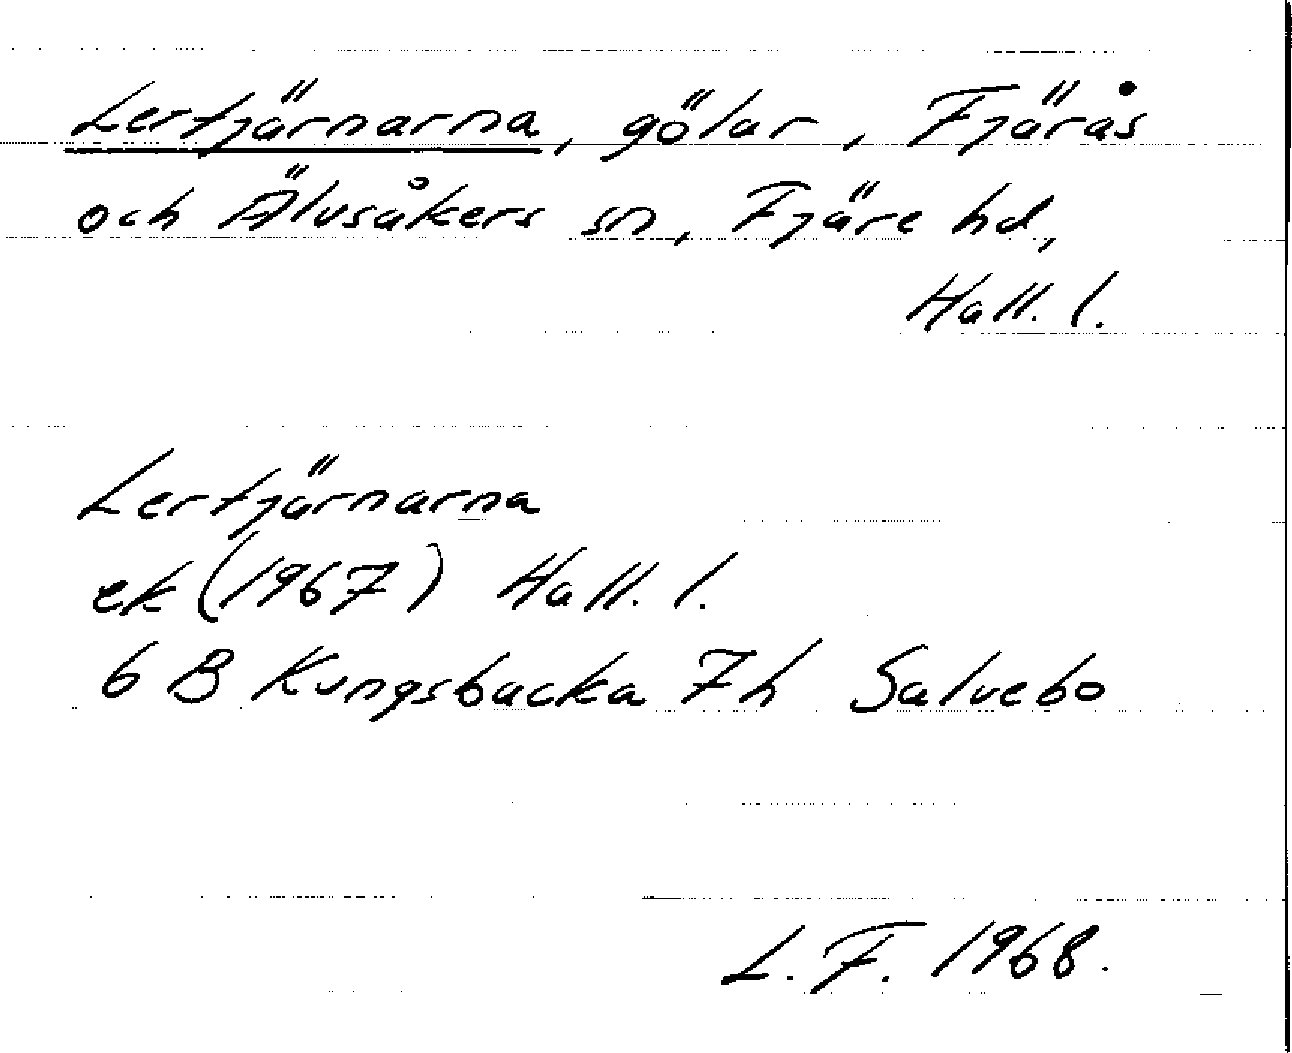 Lertjärnarna, gölar, Fjärås
och Älvsåkers sn, Fjäre hd,
Hall. l.
Lertjärnarna
ek (1967) Hall. l.
6 B Kungsbacka 7h Salvebo
L. F. 1968.